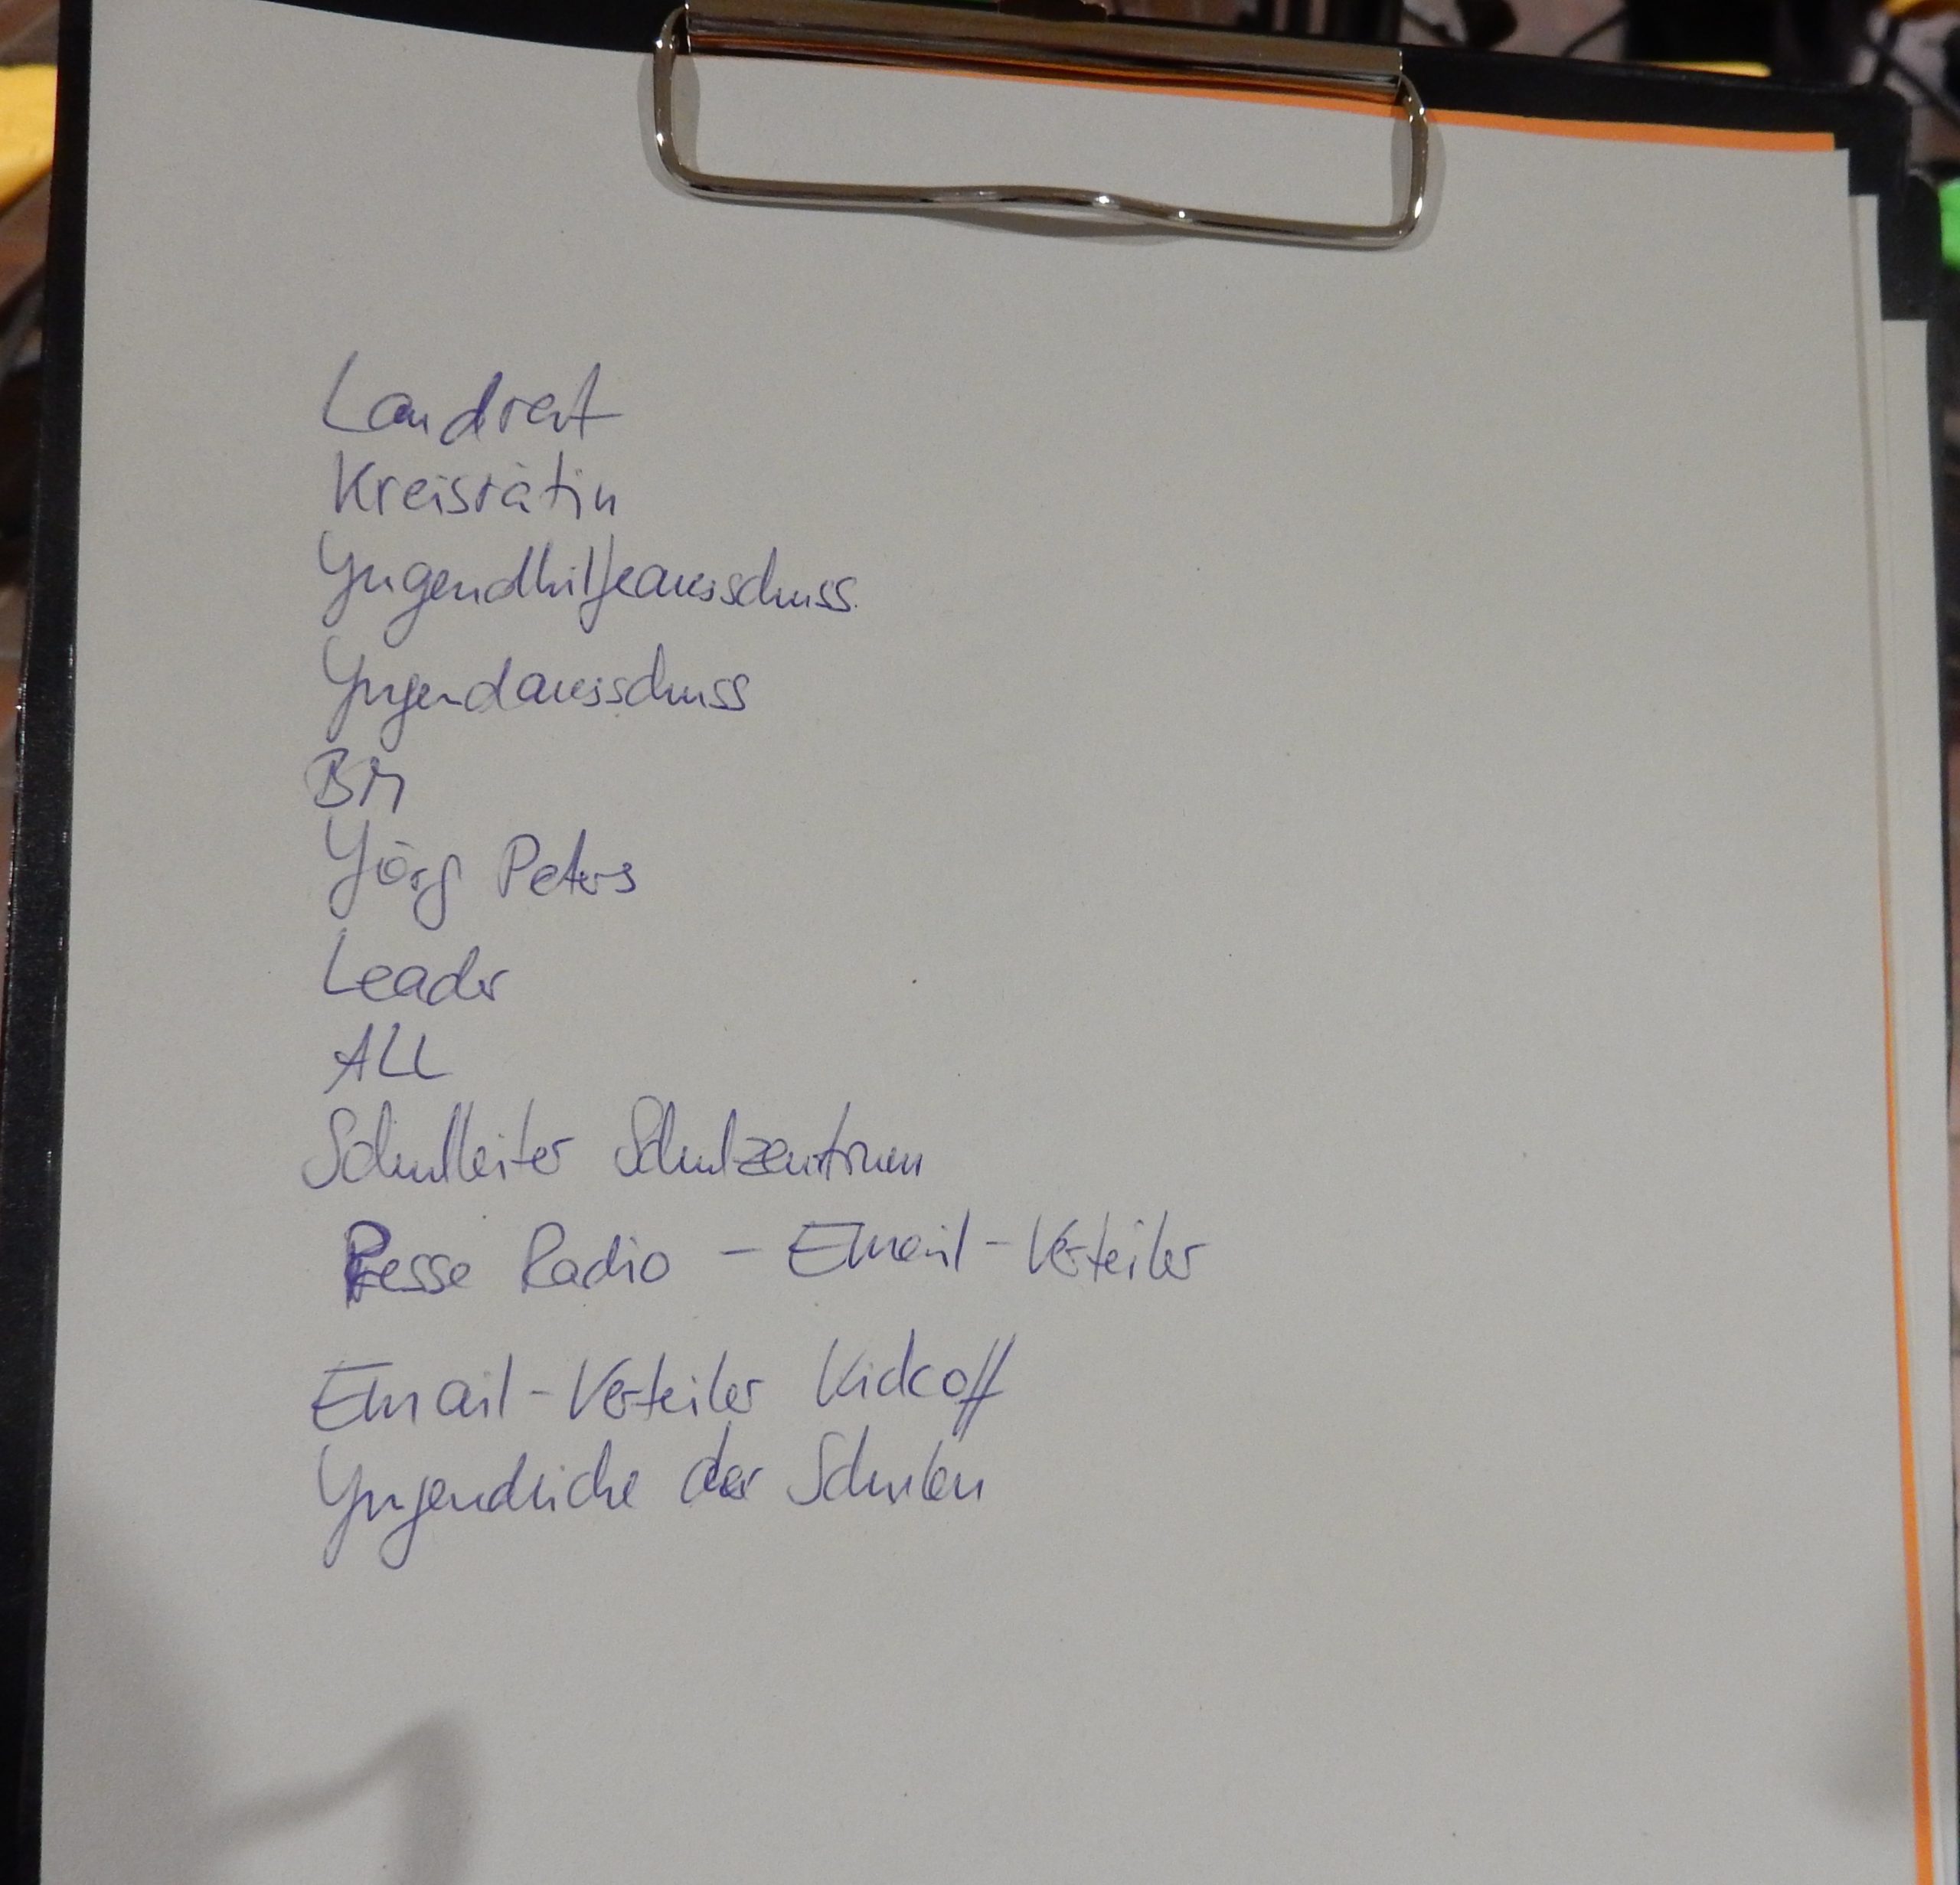 Landrat
Kreisrätin
Jugendhilfeausschuss
Jugendausschuss
BM
Jörg Peters
Leader
ALL
Schulleiter Schulzentrum
Presse Radio - Email-Verteiler
Email-Verteiler Kickoff
Jugendliche der Schulen